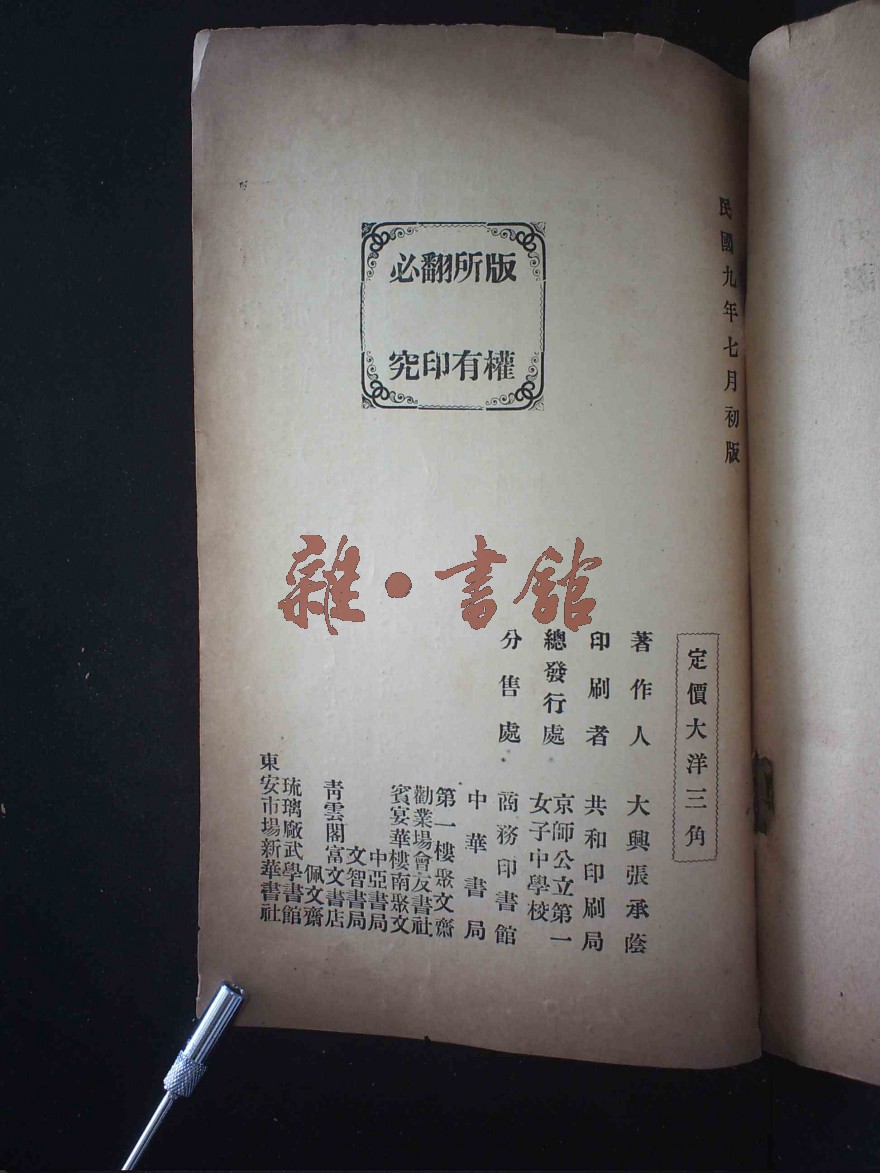 民國九年七月初版
版權
所有
翻印
必究
定價大洋三角
著作人 大興張承蔭
印刷者 共和印刷局
總發行處 京師公立第一
女子中學校
分售處 商務印書館
中華書局
第一樓聚文齋
勸業場會友書社
賓宴華樓南聚文
中亞書局
文智書局
青雲閣富文書店
佩文齋
琉璃廠武學書館
東安市場新華書社
雜·書館